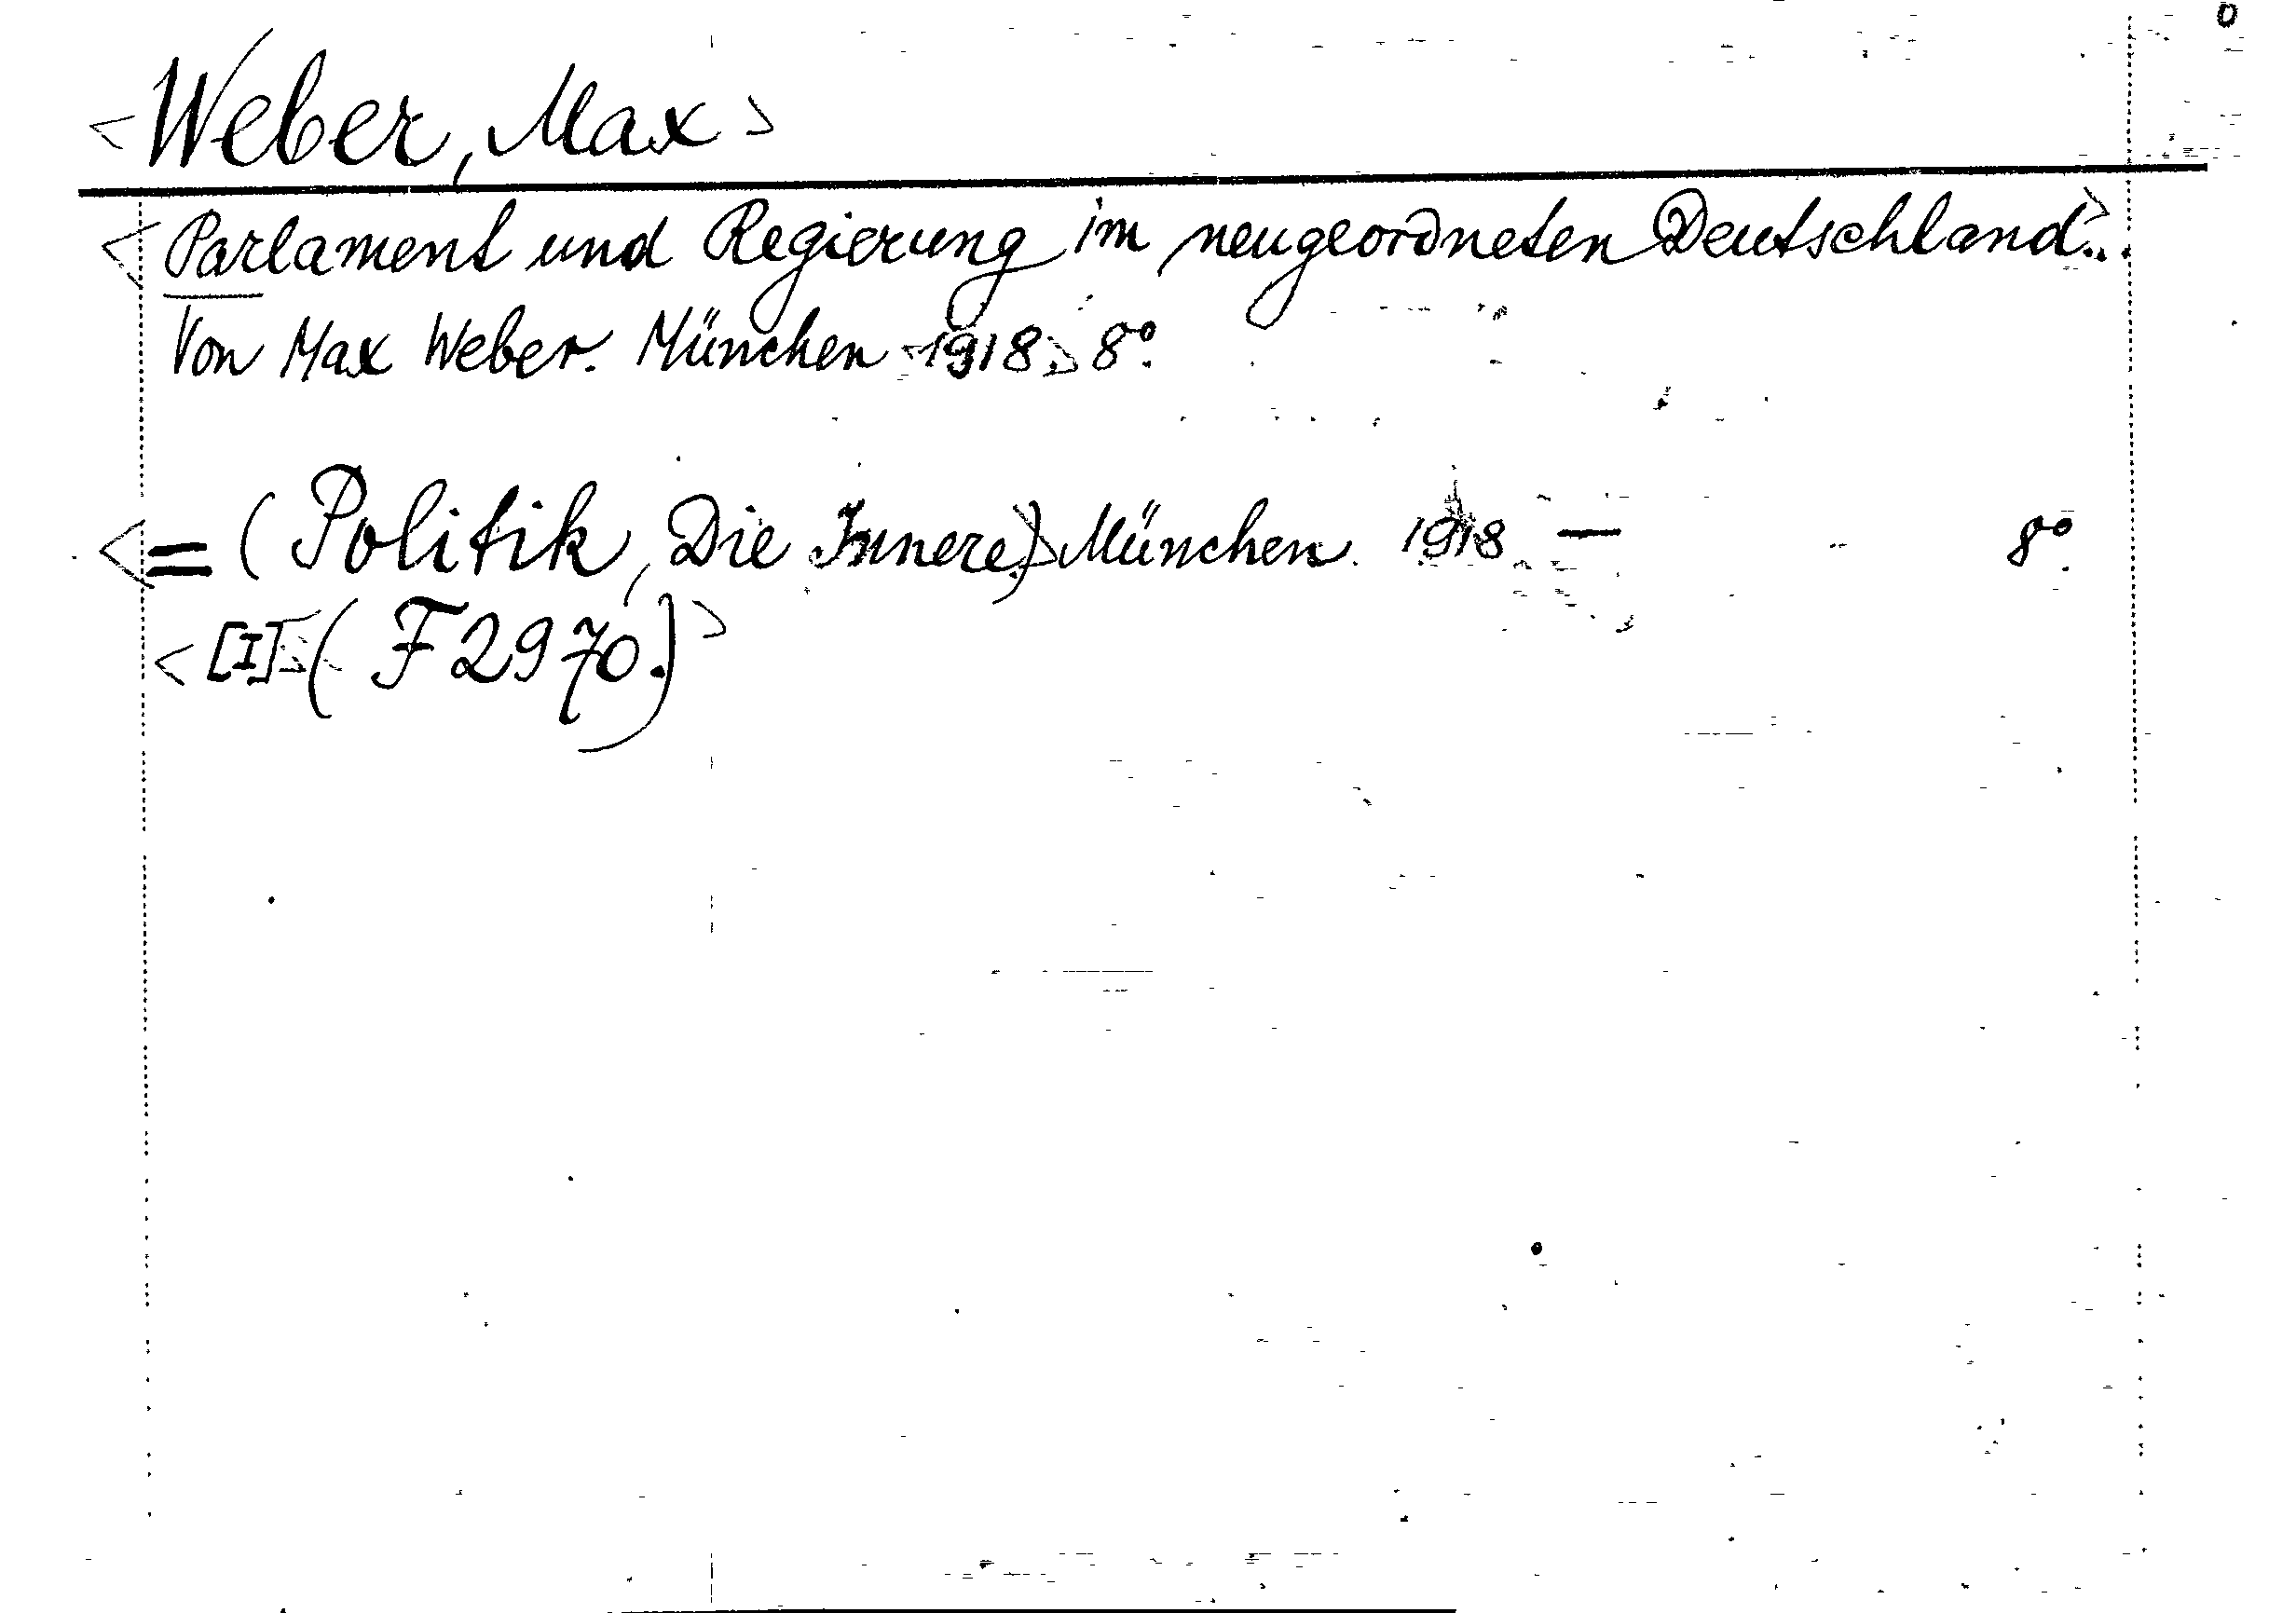 <Weber, Max>
<Parlament und Regierung im neugeordneten Deutschland>...
Von Max Weber. München <1918.> 8°.
<= (Politik, Die Innere.)> München. 1918 — 8°.
<[I] (F 2970.)>